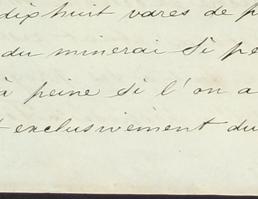 dixhuit vares de p
du minerai si pe
à peine si l'on a
t exclusivement du